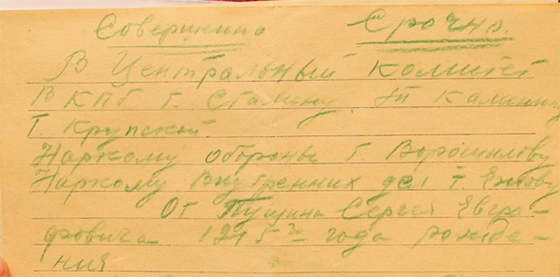 Совершенно Срочно.
В Центральный Комитет
ВКПб т. Сталину. т. Калинину
т. Крупской
Наркому обороны т Ворошилову
Наркому внутренних дел т. Ежову
От Пущина Сергея Евгра-
фовича 1915го года рожде-
ния